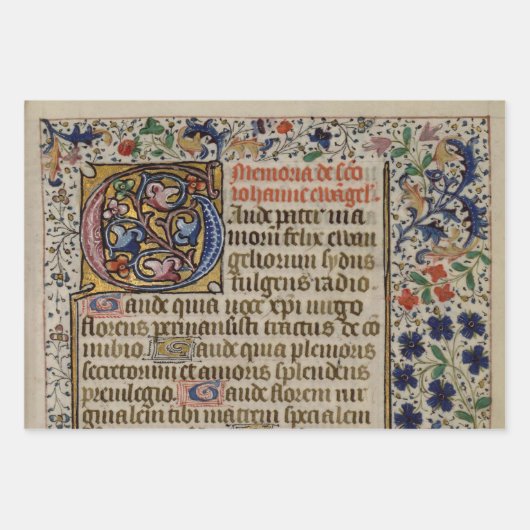 Memoria de sco
iohanne ewãgel'
Aude pater ma
morũ felix ewan
geliorum sydus
fulgens radio
Gaude quia ugee xpi uirgo
florens permansisti tractus de co
nubio Gaude quia plemoris
secretorum et amoris splendens
preuilegio Gaude florem uir
ginalem tibi matrem specialem